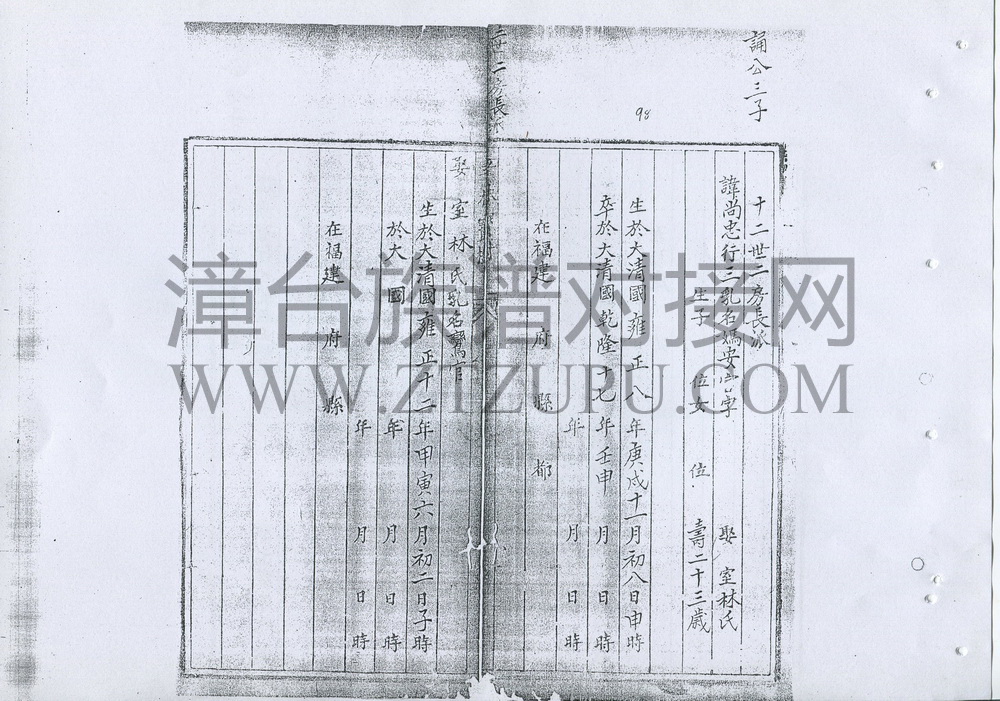 誦公三子
98
十二世二房長派
諱尚忠行三乳名媽安官字 娶室林氏
生子 位女 位 壽二十三歲
生於大清國雍正八年庚戌十一月初八日申時
卒於大清國乾隆十七年壬申 月 日 時
年 月 日 時
在福建 府 縣 都
世二房長派
娶室林氏乳名 官
生於大清國雍正十二年甲寅六月初二日子時
於大 國 年 月 日 時
年 月 日 時
在福建 府 縣
漳台族谱对接网
WWW.ZTZUPU.COM